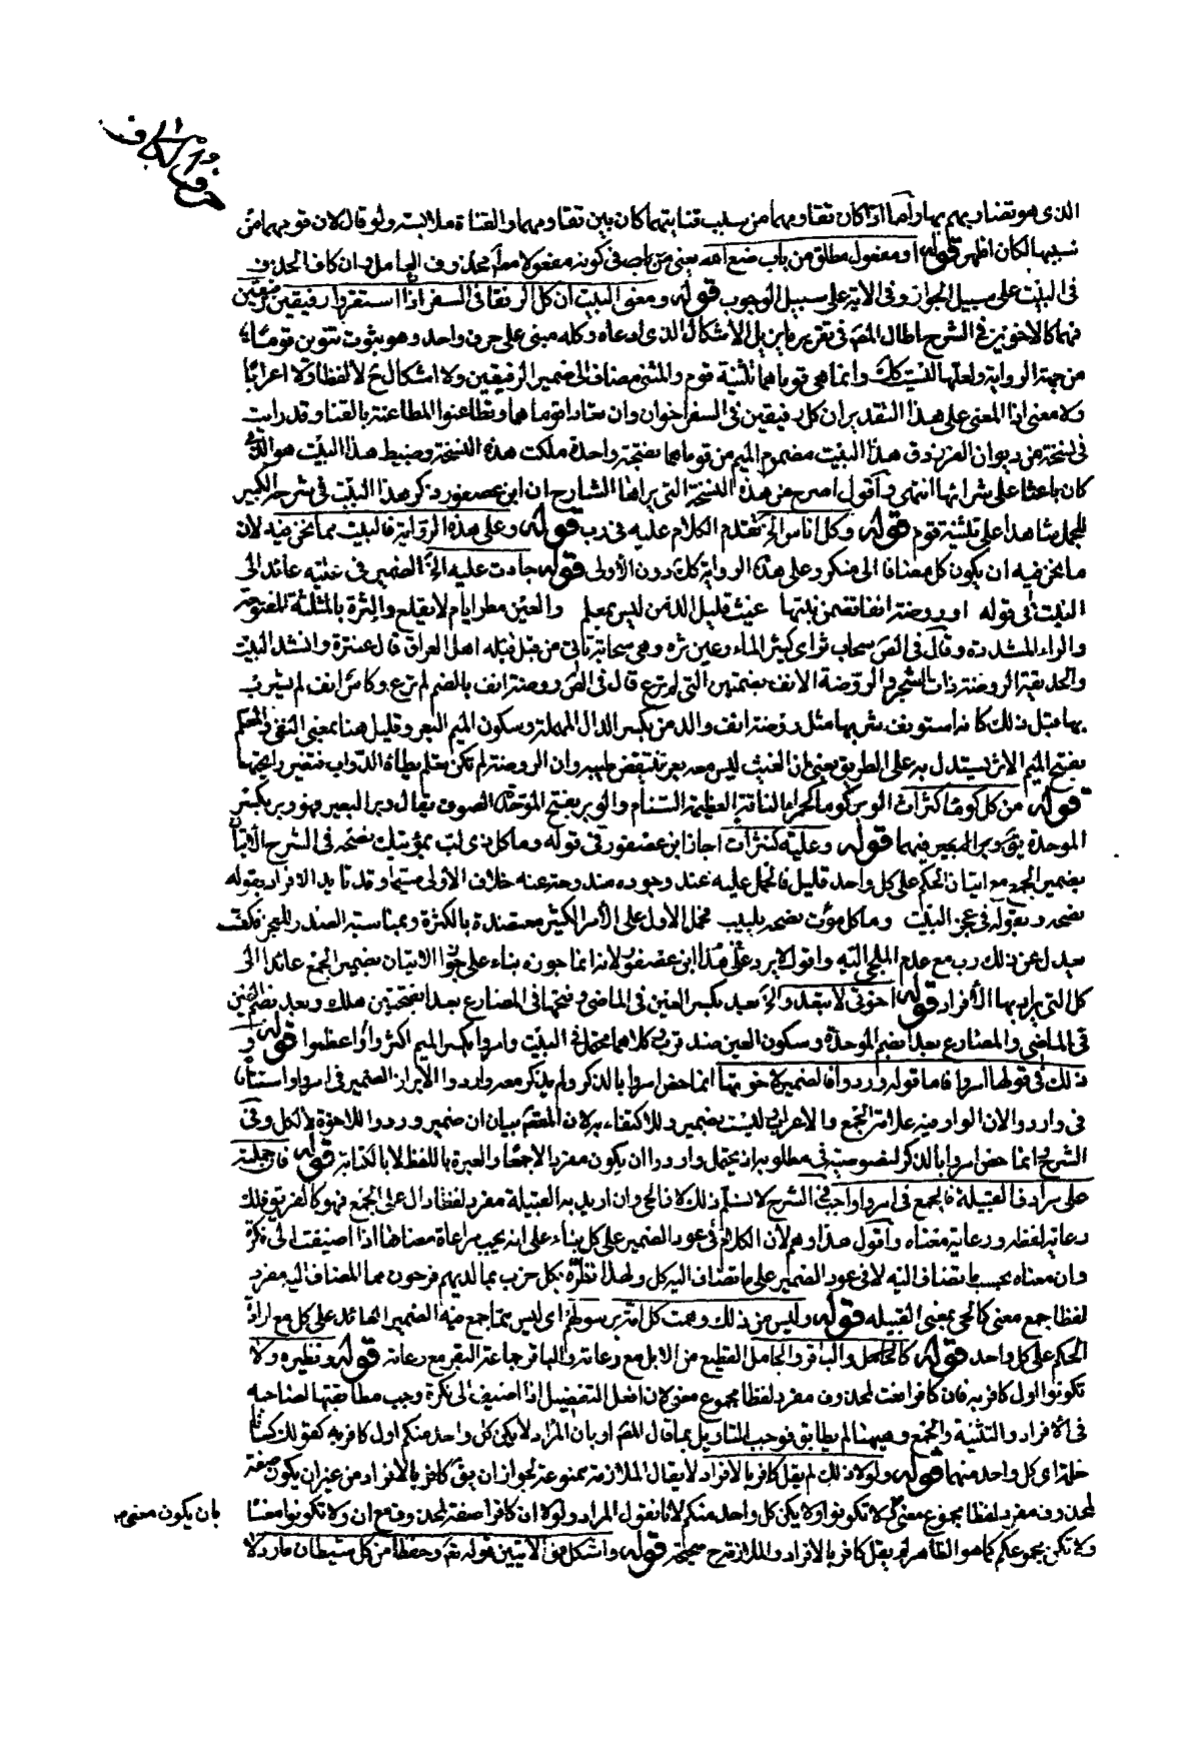 حرف الكاف
الذى هو تضاربهم بها وأما اذا كان تقاومهما من سبب قنابتهما كان بين تقاومهما والقناة ملابسة ولو قال لان قومهما من
سببها لكان اظهر قوله او مفعول مطلق من باب صنع الله يعنى من باب فى كونه مفعولا مطلقا محذوف العامل وان كان الحذف
فى البيت على سبيل الجواز وفى الاية على سبيل الوجوب قوله ومعنى البيت ان كل الرفقا فى السفر اذا استقروا رفيقين رفيقين
فهما كالاخوين فى الشرح اطال المص فى تقرير ما يزيل الاشكال الذى ادعاه وكله مبنى على حرف واحد وهو بثوت تنوين قوما
من جهة الرواية ولعلها ليست كذلك وانما هى قوماهما تثنية قوم والمثنى مضاف الى ضمير الرفيقين ولا اشكال ح لا لفظا ولا اعرابا
ولا معنى اذ المعنى على هذا التقدير ان كل رفيقين فى السفر اخوان وان تعادا قوماهما وتطاعنوا المطاعنة بالقنا وقد رايت
فى نسخة من ديوان الفرزدق هذا البيت مضموم الميم من قوماهما بفتحة واحدة ملكت هذه النسخة وضبط هذا البيت هو الذى
كان باعثا على شرائها انتهى وأقول اصرح من هذه النسخة التى يراها الشارح ان ابن عصفور ذكر هذا البيت فى شرحه الكبير
للجمل شاهدا على تثنية قوم قوله وكل اناس الخ تقدم الكلام عليه فى رب قوله وعلى هذه الرواية فالبيت مما نحن فيه لان
ما نحن فيه ان يكون كل مضافا الى منكر وعلى هذه الرواية كذلك دون الأولى قوله جادت عليه الخ الضمير فى عليه عائد الى
النبت فى قوله او روضة انفا تضمن نبتها غيث قليل الدمن ليس بمعلم والعين مطر ايام لا يقلع والثرة بالمثلثة المفتوحة
والراء المشددة وقال فى الص سحاب ثر اى كثير الماء وعين ثره وهى سحابة تاتى من قبل قبلة اهل العراق قال عنترة وانشد البيت
والحديقة الروضة ذات الشجر والروضة الانف بضمتين التى لم ترع قال فى الص روضة انف بالضم لم ترع وكاس انف لم يشرب
بها قبل ذلك كانه استونف شربها مثل روضة انف والدمن بكسر الدال المهملة وسكون الميم البعر وقليل هنا بمعنى النفى والمعلم
بفتح الميم الاثر يستدل به على الطريق يعنى ان الغيث ليس معه بعر تنتقض طيبه وان الروضة لم تكن بمعلم يطاه الدواب فتغير رايحتها
قوله من كل كوما كثرات الوبر كوما الحمراء الناقة العظيمة السنام والوبر بفتح الموحدة الصوف يقال وبر البعير فهو وبر بكسر
الموحدة وبر البعير فيهما قوله وعليه كثرات اجاز ابن عصفور فى قوله وما كل ذى لب بمؤتيك نصحه فى الشرح الاتيان
بضمير الجمع مع اتيان الحكم على كل واحد قليل فالحمل عليه عند وجوده مندوحة عنه خلاف الأولى سيما وقد تايد الافراد بقوله
نصحه وبقوله فى عجز البيت وما كل مؤت نصحه بلبيب فحمل الاول على الامر الكثير معتضدة بالكثرة وبمناسبة الصدر للعجز فكيف
يعدل عن ذلك رب مع عدم الملجى اليه واقول لا يرد على هذا ابن عصفور لانه انما جوزه بناء على جواز الاتيان بضمير الجمع عائدا الى
كل التى يراد بها الأفراد قوله اخوتى لا تبعدوا الخ بعد بكسر العين فى الماضى وفتحها فى المضارع بعدا بفتحتين هلك وبعد بضم العين
فى الماضى والمضارع بعدا بضم الموحدة وسكون العين ضد قرب وكلاهما محتمل فى البيت وامروا بكسر الميم اكثروا وعظموا قوله و
ذلك فى قولها امروا فاما قوله وردوا فالضمير لاخوتها انما خص امروا بالذكر ولم يذكر معه واردوا لابراز الضمير فى امروا واستتاره
فى واردوا لان الواو فيه علامة الجمع والاعراب ليست بضمير وللاكتفاء به لان المقصد بيان ان ضمير وردوا للاخوة لا لكل وفى
الشرح انما خص امروا بالذكر لخصوصية فى مطلوبه اذ يحتمل واردوا ان يكون مفردا لاجمعا والعبرة باللفظ لا بالكتابة قوله فان حملته
على مراد فا القبيلة فالجمع فى امروا واجب فى الشرح لا نسلم ذلك لان الحى وان اريد به القبيلة مفرد لفظا دال على الجمع فهو كالفريق فلك
رعاية لفظه ورعاية معناه وأقول هذا وهم لأن الكلام فى عود الضمير على كل بناء على انه يجب مراعاة معناها اذا اضيفت الى نكرة
وان معناه بحسب ما تضاف اليه لا فى عود الضمير على ما تضاف اليه كل ولهذا نظره بكل حزب بما لديهم فرحون مما المضاف اليه مفرد
لفظا جمع معنى كالحى بمعنى القبيلة قوله وليس من ذلك وهمت كل امة برسولهم اى ليس مما جمع فيه الضمير العائد على كل مع ارادة
الحكم على كل واحد قوله كالجامل والباقر والجامل القطيع من الابل مع رعاته والباقر جماعة البقر مع رعاته قوله ونظيره ولا
تكونوا اول كافر به فان كافرا نعت لمحذوف مفرد لفظا مجموع معنى لان افعل التفضيل اذا اضيف الى نكرة وجب مطابقتها لصاحبه
فى الافراد والتثنية والجمع وههنا لم يطابق فوجب التاويل بما قال المص او بان المراد لا يكن كل واحد منكم اول كافر به كقولك كسانا
حلة اى كل واحد منهما قوله ولولا ذلك لم يقل كافر بالافراد لا يقال الملازمة ممنوعة لجواز ان يق كافر بالافراد من غير ان يكون صفة
لمحذوف مفرد لفظا مجموع معنى لا تكونوا ولا يكن كل واحد منكم لانا نقول المراد ولولا ان كافرا صفة لمحذوف مع ان ولا تكونوا معنا
بان يكون معنى
ولا تكن مجموعكم كما هو الظاهر لم يقل كافر بالافراد والملازمة ح صحيحة قوله واشكل من الايتين قوله تعم وحفظا من كل شيطان مارد لا